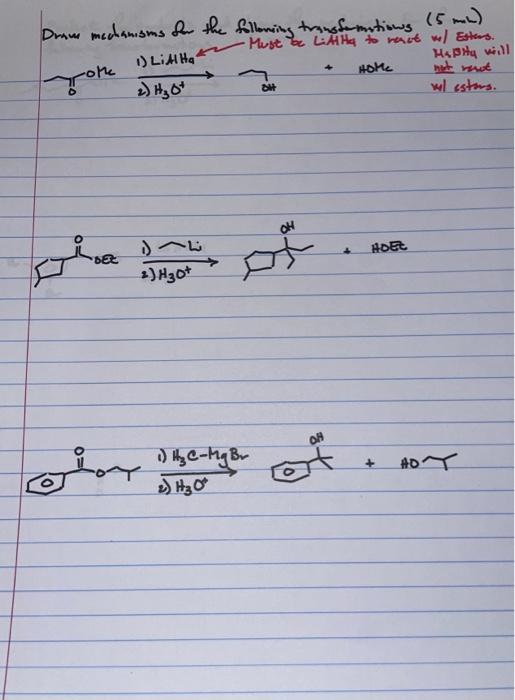 Draw mechanisms for the following transformations (5 min)
Must be LiAlH4 to react w/ Esters.
NaBH4 will
not react
w/ esters.
OMe
O
1) LiAlH4
2) H3O+
OH
+ HOMe
O
OEt
1) Li
2) H3O+
OH
+ HOEt
O
O
1) H3C-MgBr
2) H3O+
OH
+ HO